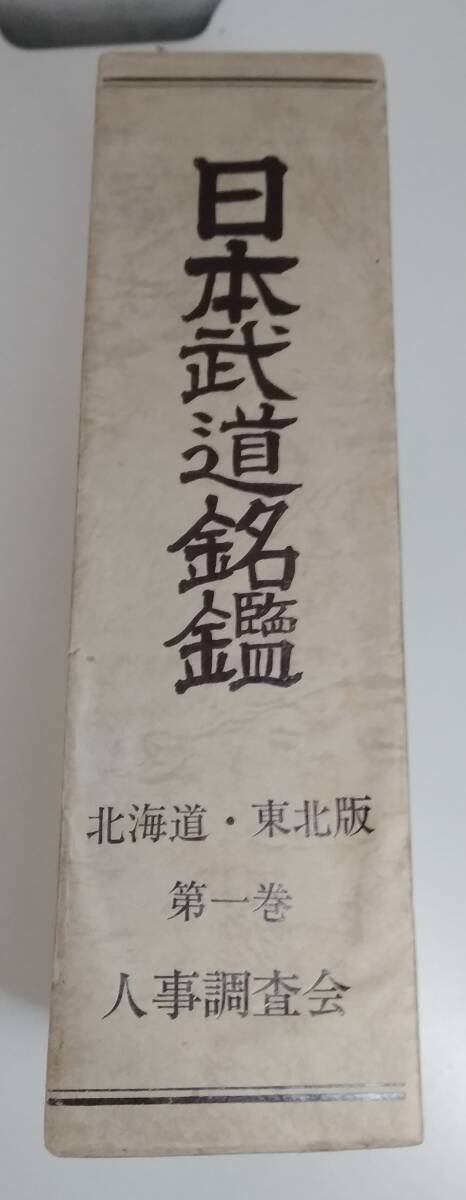 日本武道銘鑑
北海道・東北版
第一巻
人事調査会